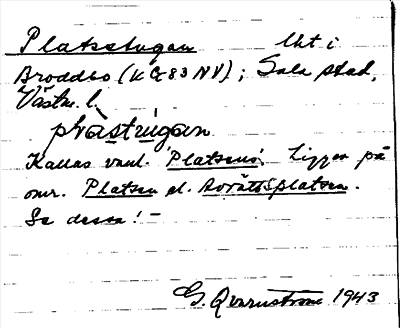 Platsstugan Uht i
Broddbo (KG83NV); Sala stad,
Västm. l.
plàstúgan
Kallas vanl. 'Platsens'. Ligger på
omr. Platsen el. Avrättsplatsen.
Se dessa! -
G. Qvarnström 1943